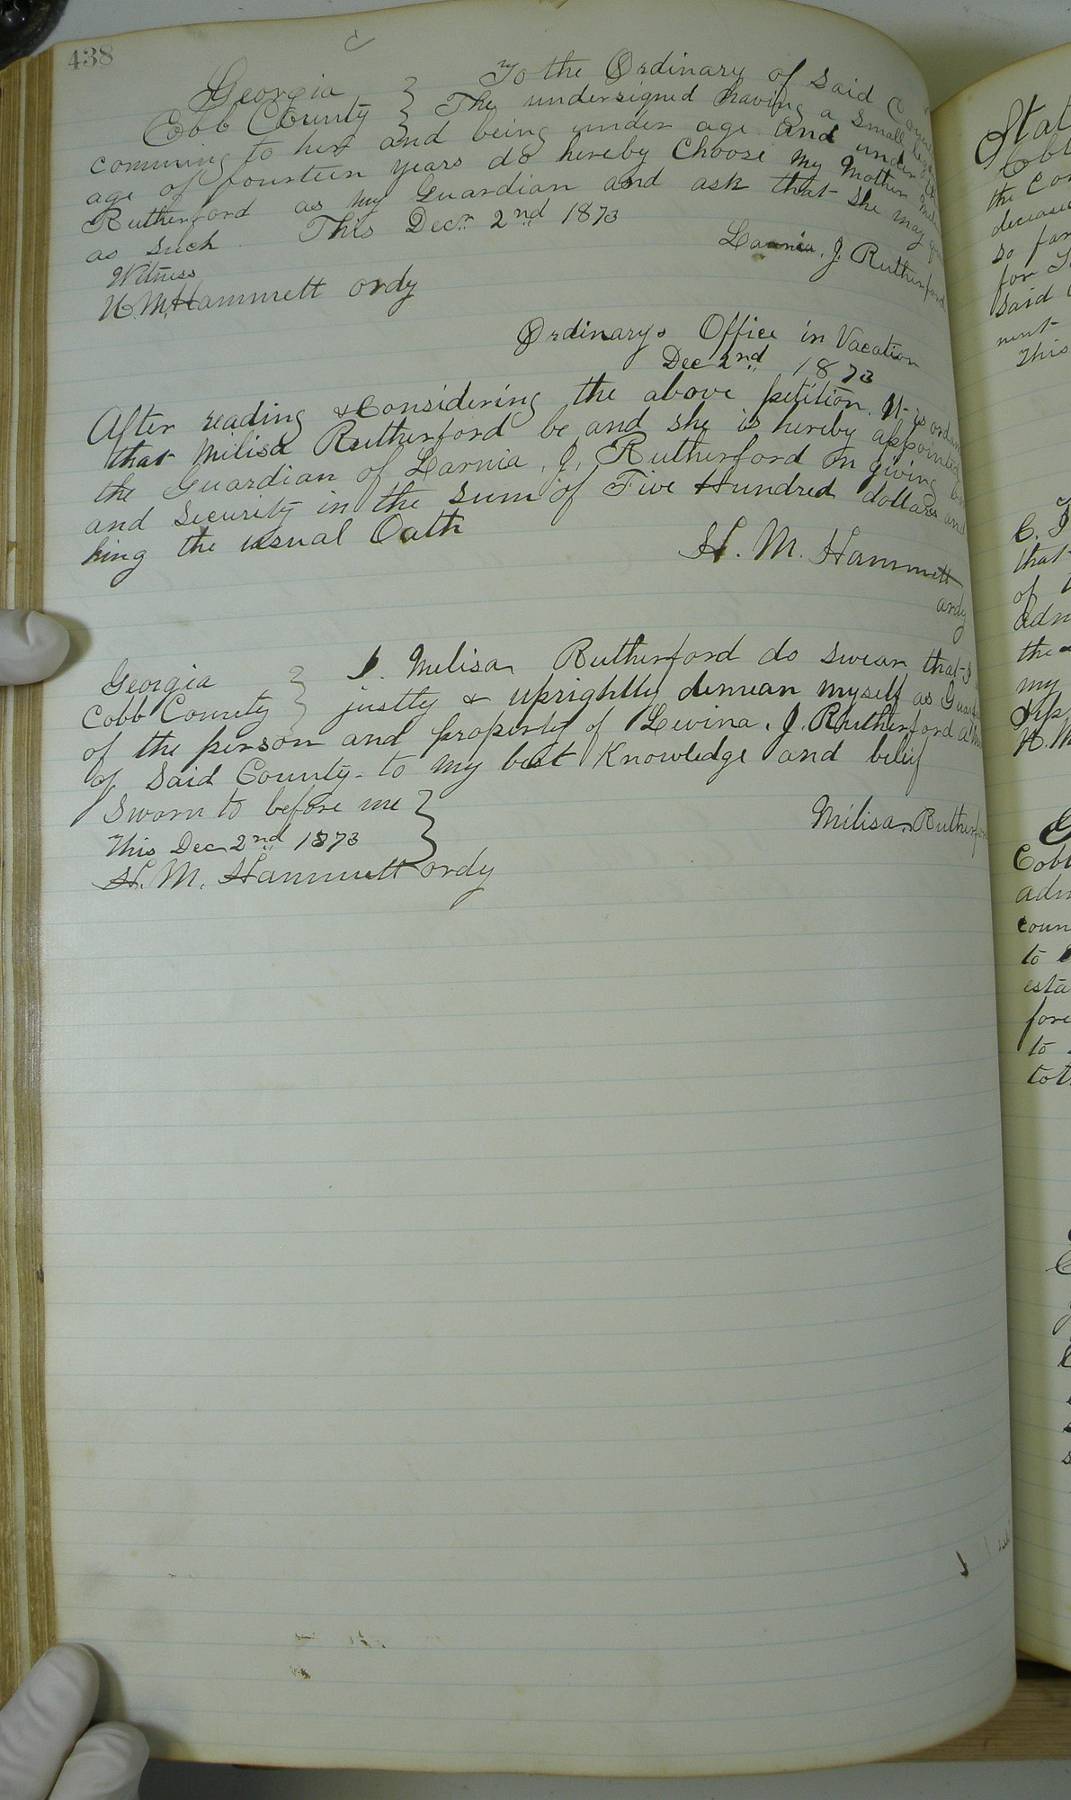 438
Georgia } To the Ordinary of Said
Cobb County } The undersigned having a Small
comming to her and being under age and under
age of fourteen years do hereby Choose my Mother
Rutherford as my Guardian and ask that She may
as Such This Decr 2nd 1873
Witness J. Rutherford
H. M. Hammett ordy
Ordinarys Office in Vacation
Dec 2nd 1873
After reading & Considering the above petition. It is
that Milisa Rutherford be and she is hereby appointed
the Guardian of Larnia, J, Rutherford on giving
and Security in the Sum of Five Hundred dollars and
king the usual Oath
H. M. Hammett
ordy
Georgia } I. Milisa Rutherford do swear that I
Cobb County } justly & uprightly demean myself as
of the person and property of Levina. J. Rutherford a
of Said County - to my best Knowledge and belief
Sworn to before me }
This Dec 2nd 1873 } Milisa Rutherford
H. M. Hammett ordy
Cobb
the
deceased
so far
for
Said
ment
This
that
of
adm
the
my
Cobb
adm
coun
to
esta
fore
to